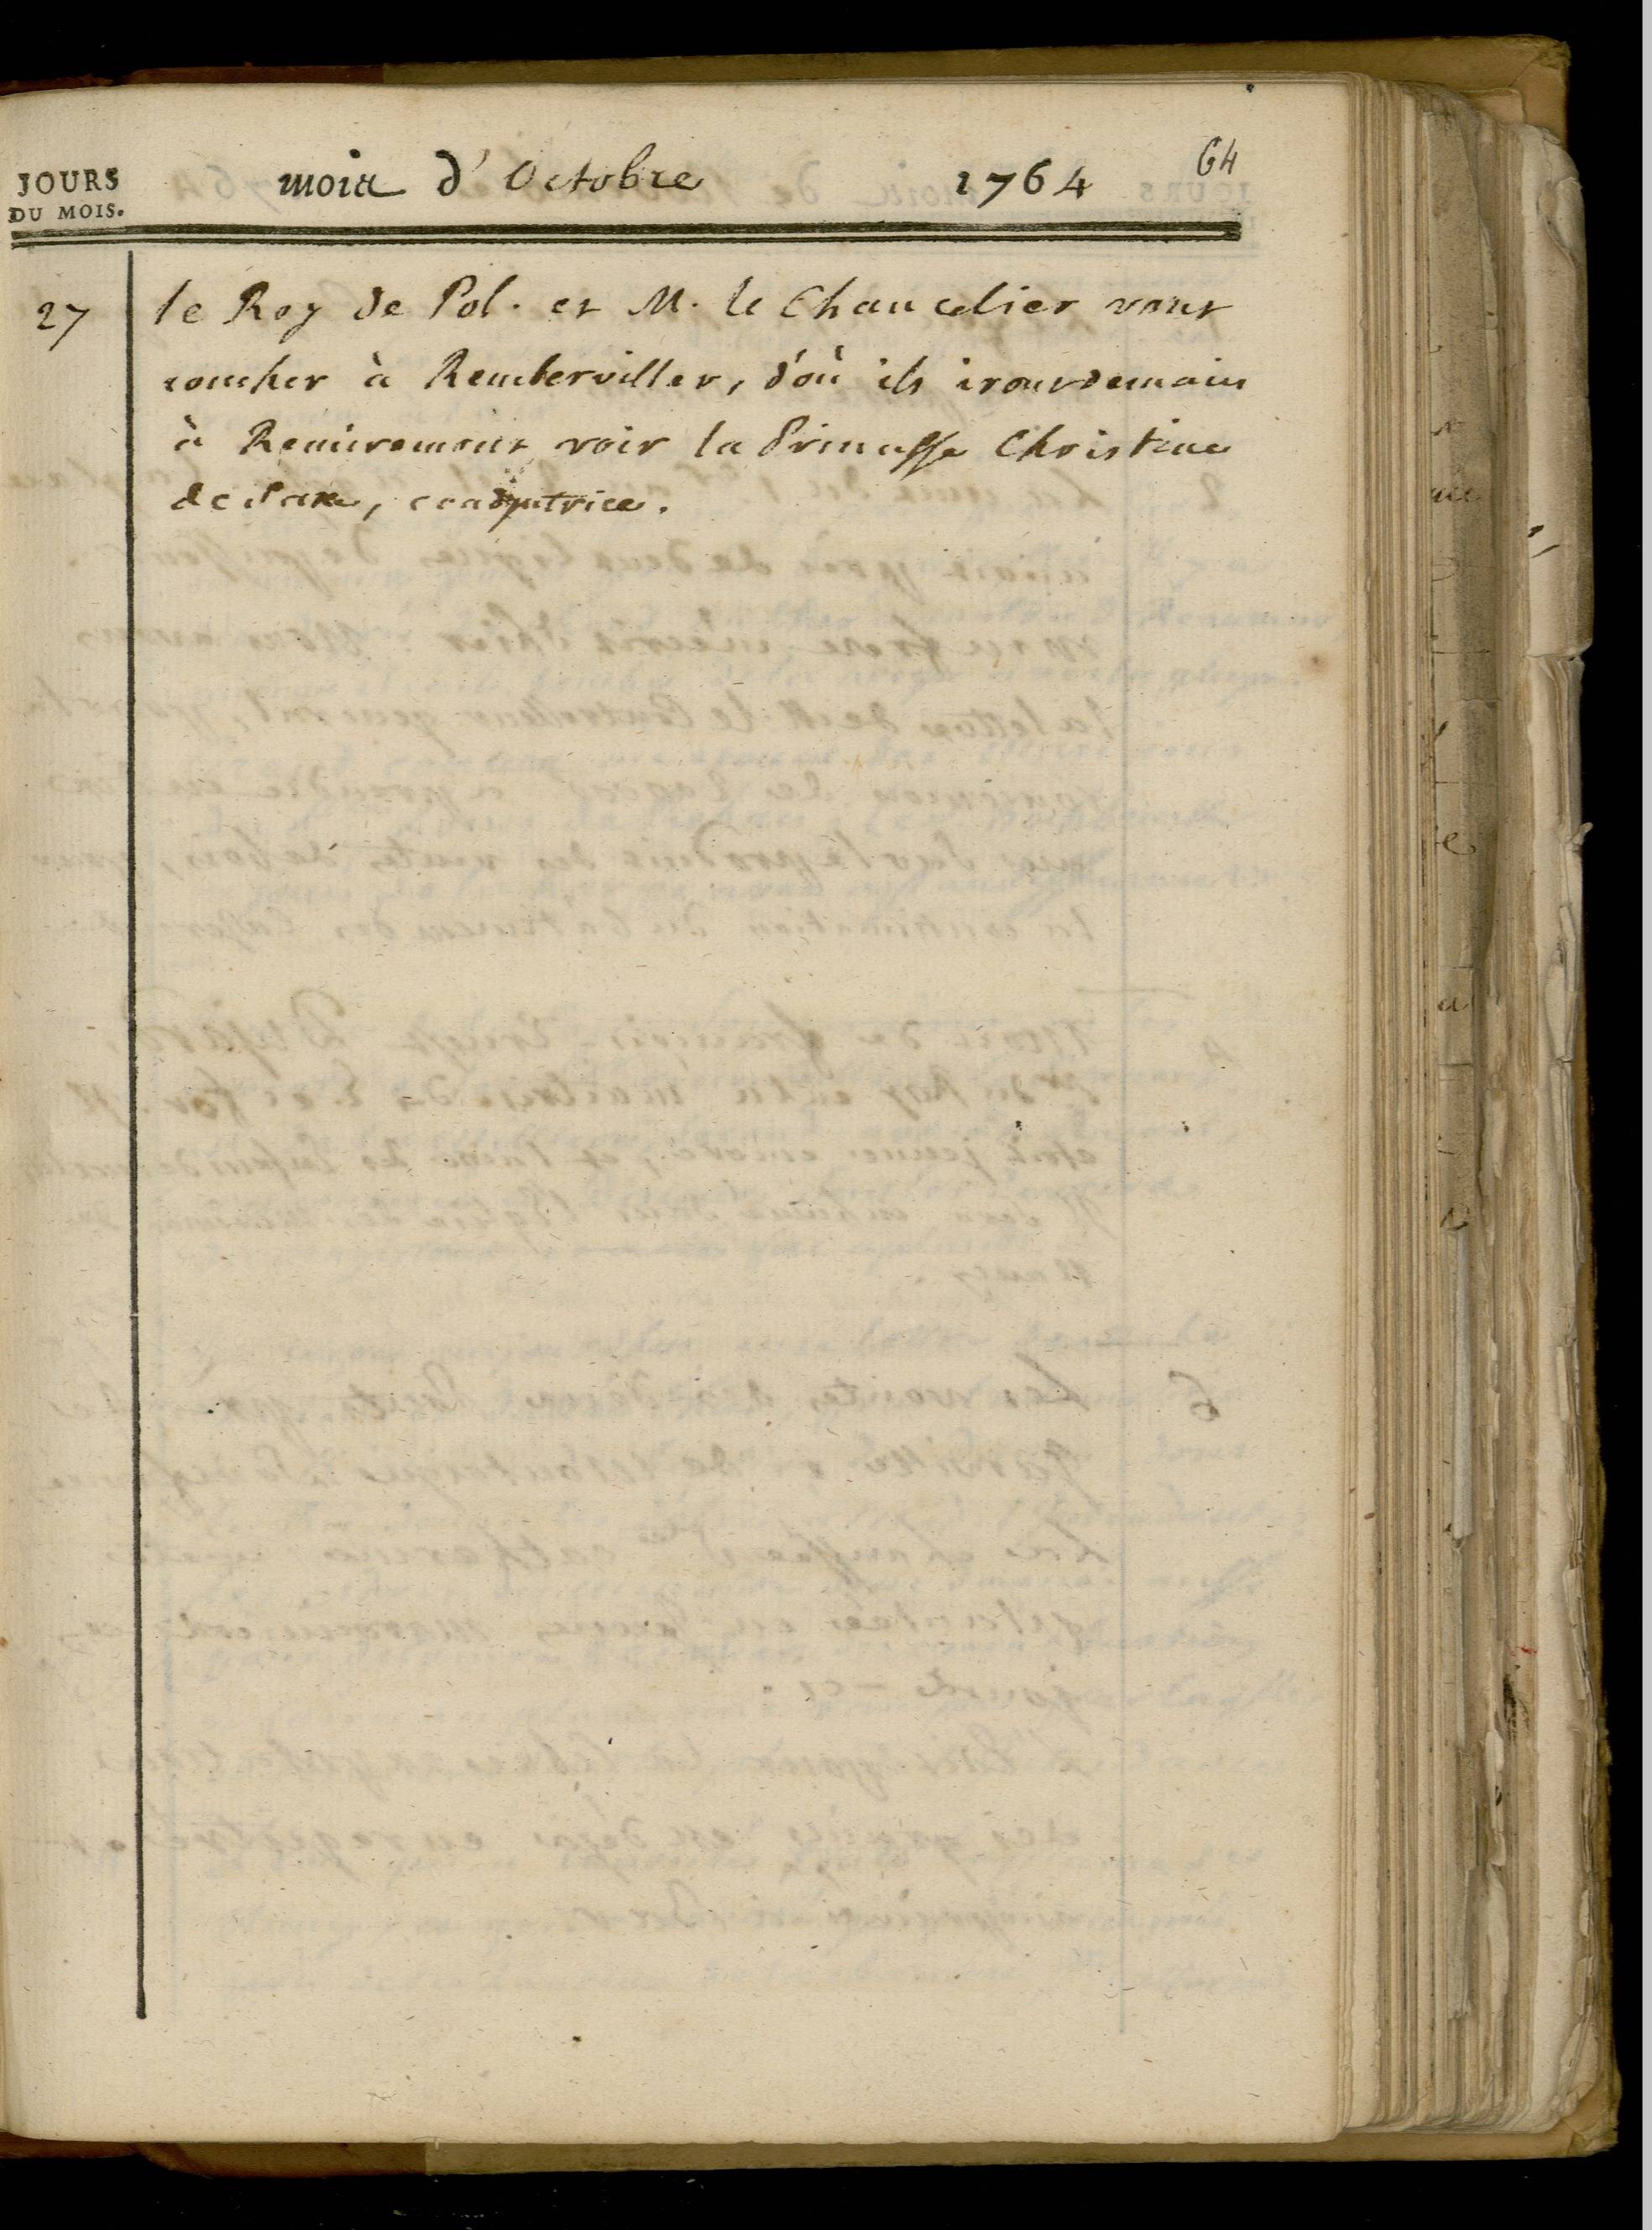 64
JOURS
DU MOIS.
mois d'Octobre 1764
27
le Roy de Pol. et M. le Chancelier vont
coucher à Remberviller, d'où ils iront demain
à Remiremont voir la Princesse Christine
de Saxe, coadjutrice.